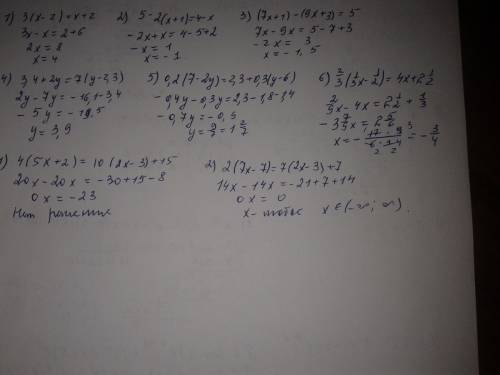 1) 3(x-2)=x+2
3x-x=2+6
2x=8
x=4
2) 5-2(x+1)=4-x
-2x+x=4-5+2
-x=1
x=-1
3) (7x+7)-(9x+3)=5
7x-9x=5-7+3
-2x=3
x=-1,5
4) 3,4+2y=7(y-2,3)
2y-7y=-16,1-3,4
-5y=-19,5
y=3,9
5) 0,2(7-2y)=2,3+0,3(y-6)
-0,4y-0,3y=2,3-1,8-1,4
-0,7y=-0,9
y=9/7=1 2/7
6) 2/3(1/3x-1/2)=4x+2 1/2
2/9x-4x=2 1/2+1/3
-3 7/9x=2 5/6
x=-(17·9)/(6·34)=-3/4
1) 4(5x+2)=10(2x-3)+15
20x-20x=-30+15-8
0x=-23
Нет решение
2) 2(7x-7)=7(2x-3)+7
14x-14x=-21+7+14
0x=0
x-
x∈(-∞;∞).